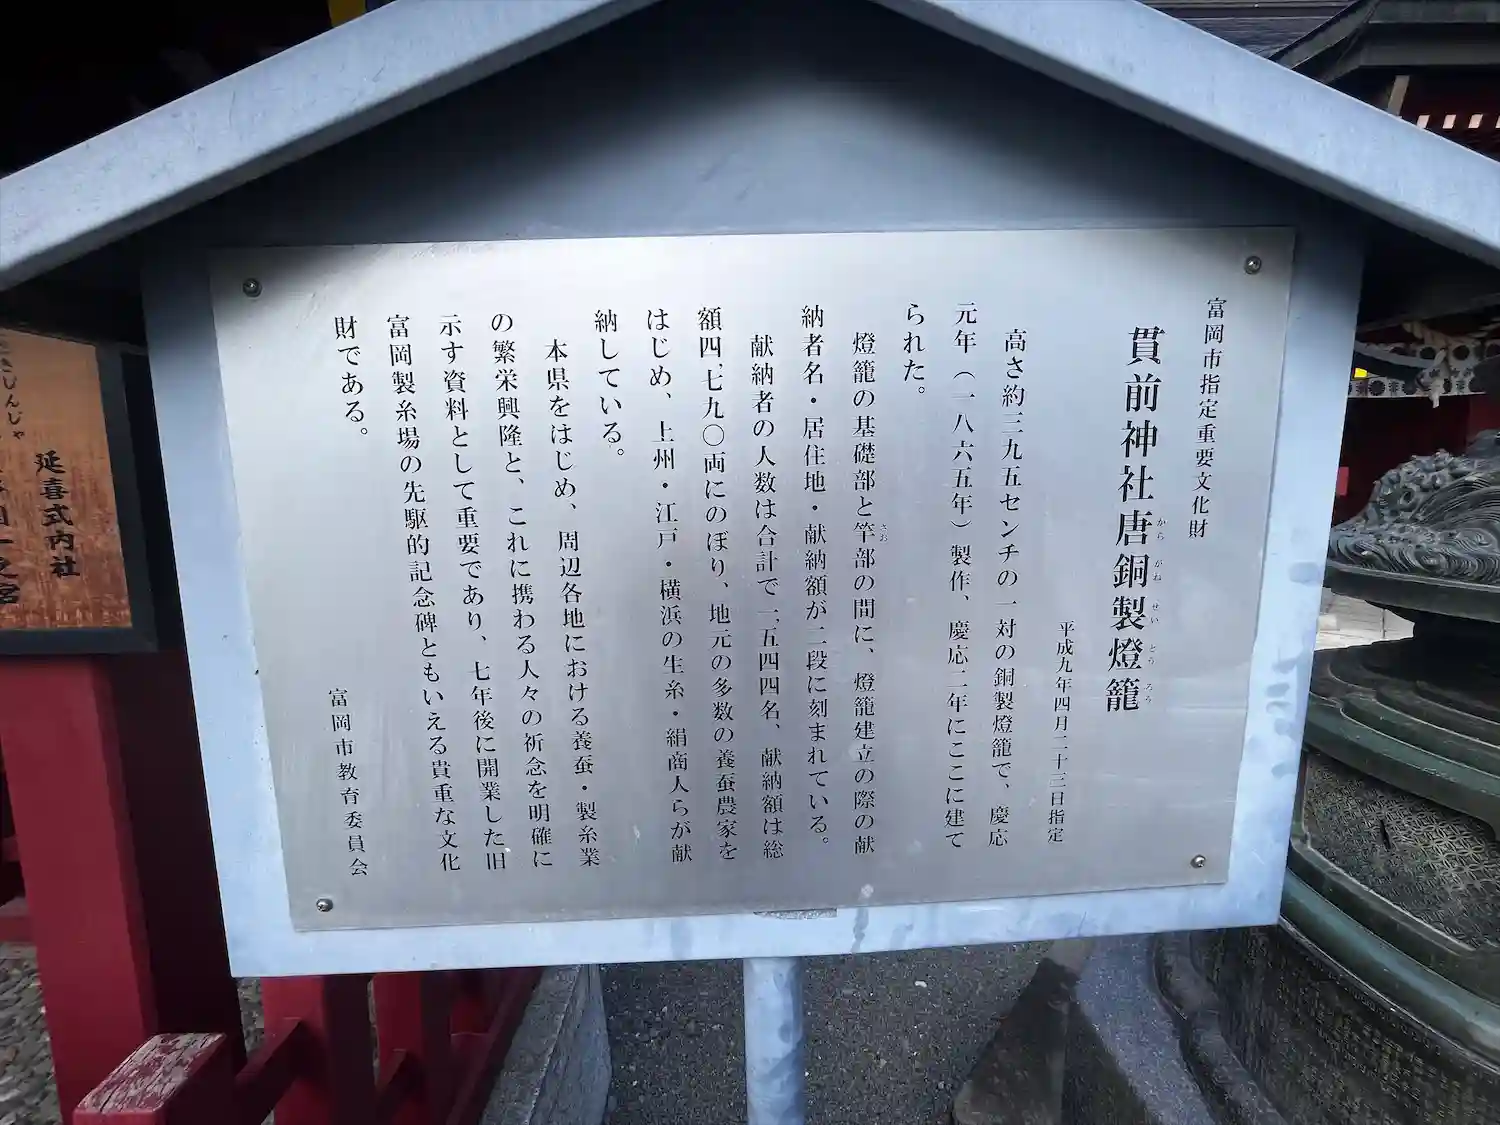 富岡市指定重要文化財
貫前神社唐銅製燈籠
からがねせいとうろう
平成九年四月二十三日指定
高さ約三九五センチの一対の銅製燈籠で、慶応
元年（一八六五年）製作、慶応二年にここに建て
られた。
燈籠の基礎部と竿部の間に、燈籠建立の際の献
さお
納者名・居住地・献納額が二段に刻まれている。
献納者の人数は合計で一、五四四名、献納額は総
額四、七九〇両にのぼり、地元の多数の養蚕農家を
はじめ、上州・江戸・横浜の生糸・絹商人らが献
納している。
本県をはじめ、周辺各地における養蚕・製糸業
の繁栄興隆と、これに携わる人々の祈念を明確に
示す資料として重要であり、七年後に開業した旧
富岡製糸場の先駆的記念碑ともいえる貴重な文化
財である。
富岡市教育委員会
延喜式内社
さしんじゃ